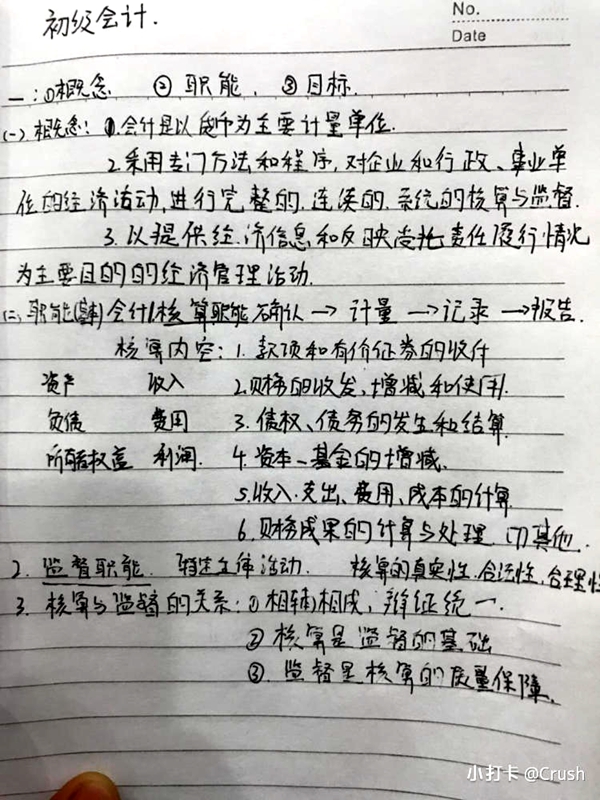 初级会计.
No.
Date
一:①概念 ②职能. ③目标.
(一)概念: 1.会计是以货币为主要计量单位.
2.采用专门方法和程序,对企业和行政、事业单
位的经济活动,进行完整的.连续的.系统的核算与监督.
3.以提供经.济信息和反映受托责任履行情况
为主要目的的经济管理活动.
(二)职能(基本)会计1核算职能确认→计量→记录→报告.
核算内容:1.款项和有价证券的收付
资产 收入 2.财物的收发、增减和使用.
负债 费用 3.债权、债务的发生和结算
所有者权益 利润. 4.资本、基金的增减.
5.收入.支出、费用、成本的计算
6.财务成果的计算与处理 (7)其他.
2.监督职能. 特定主体活动. 核算的真实性.合法性.合理性
3.核算与监督的关系:①相辅相成,辩证统一.
②核算是监督的基础
③.监督是核算的质量保障.
小打卡 @Crush